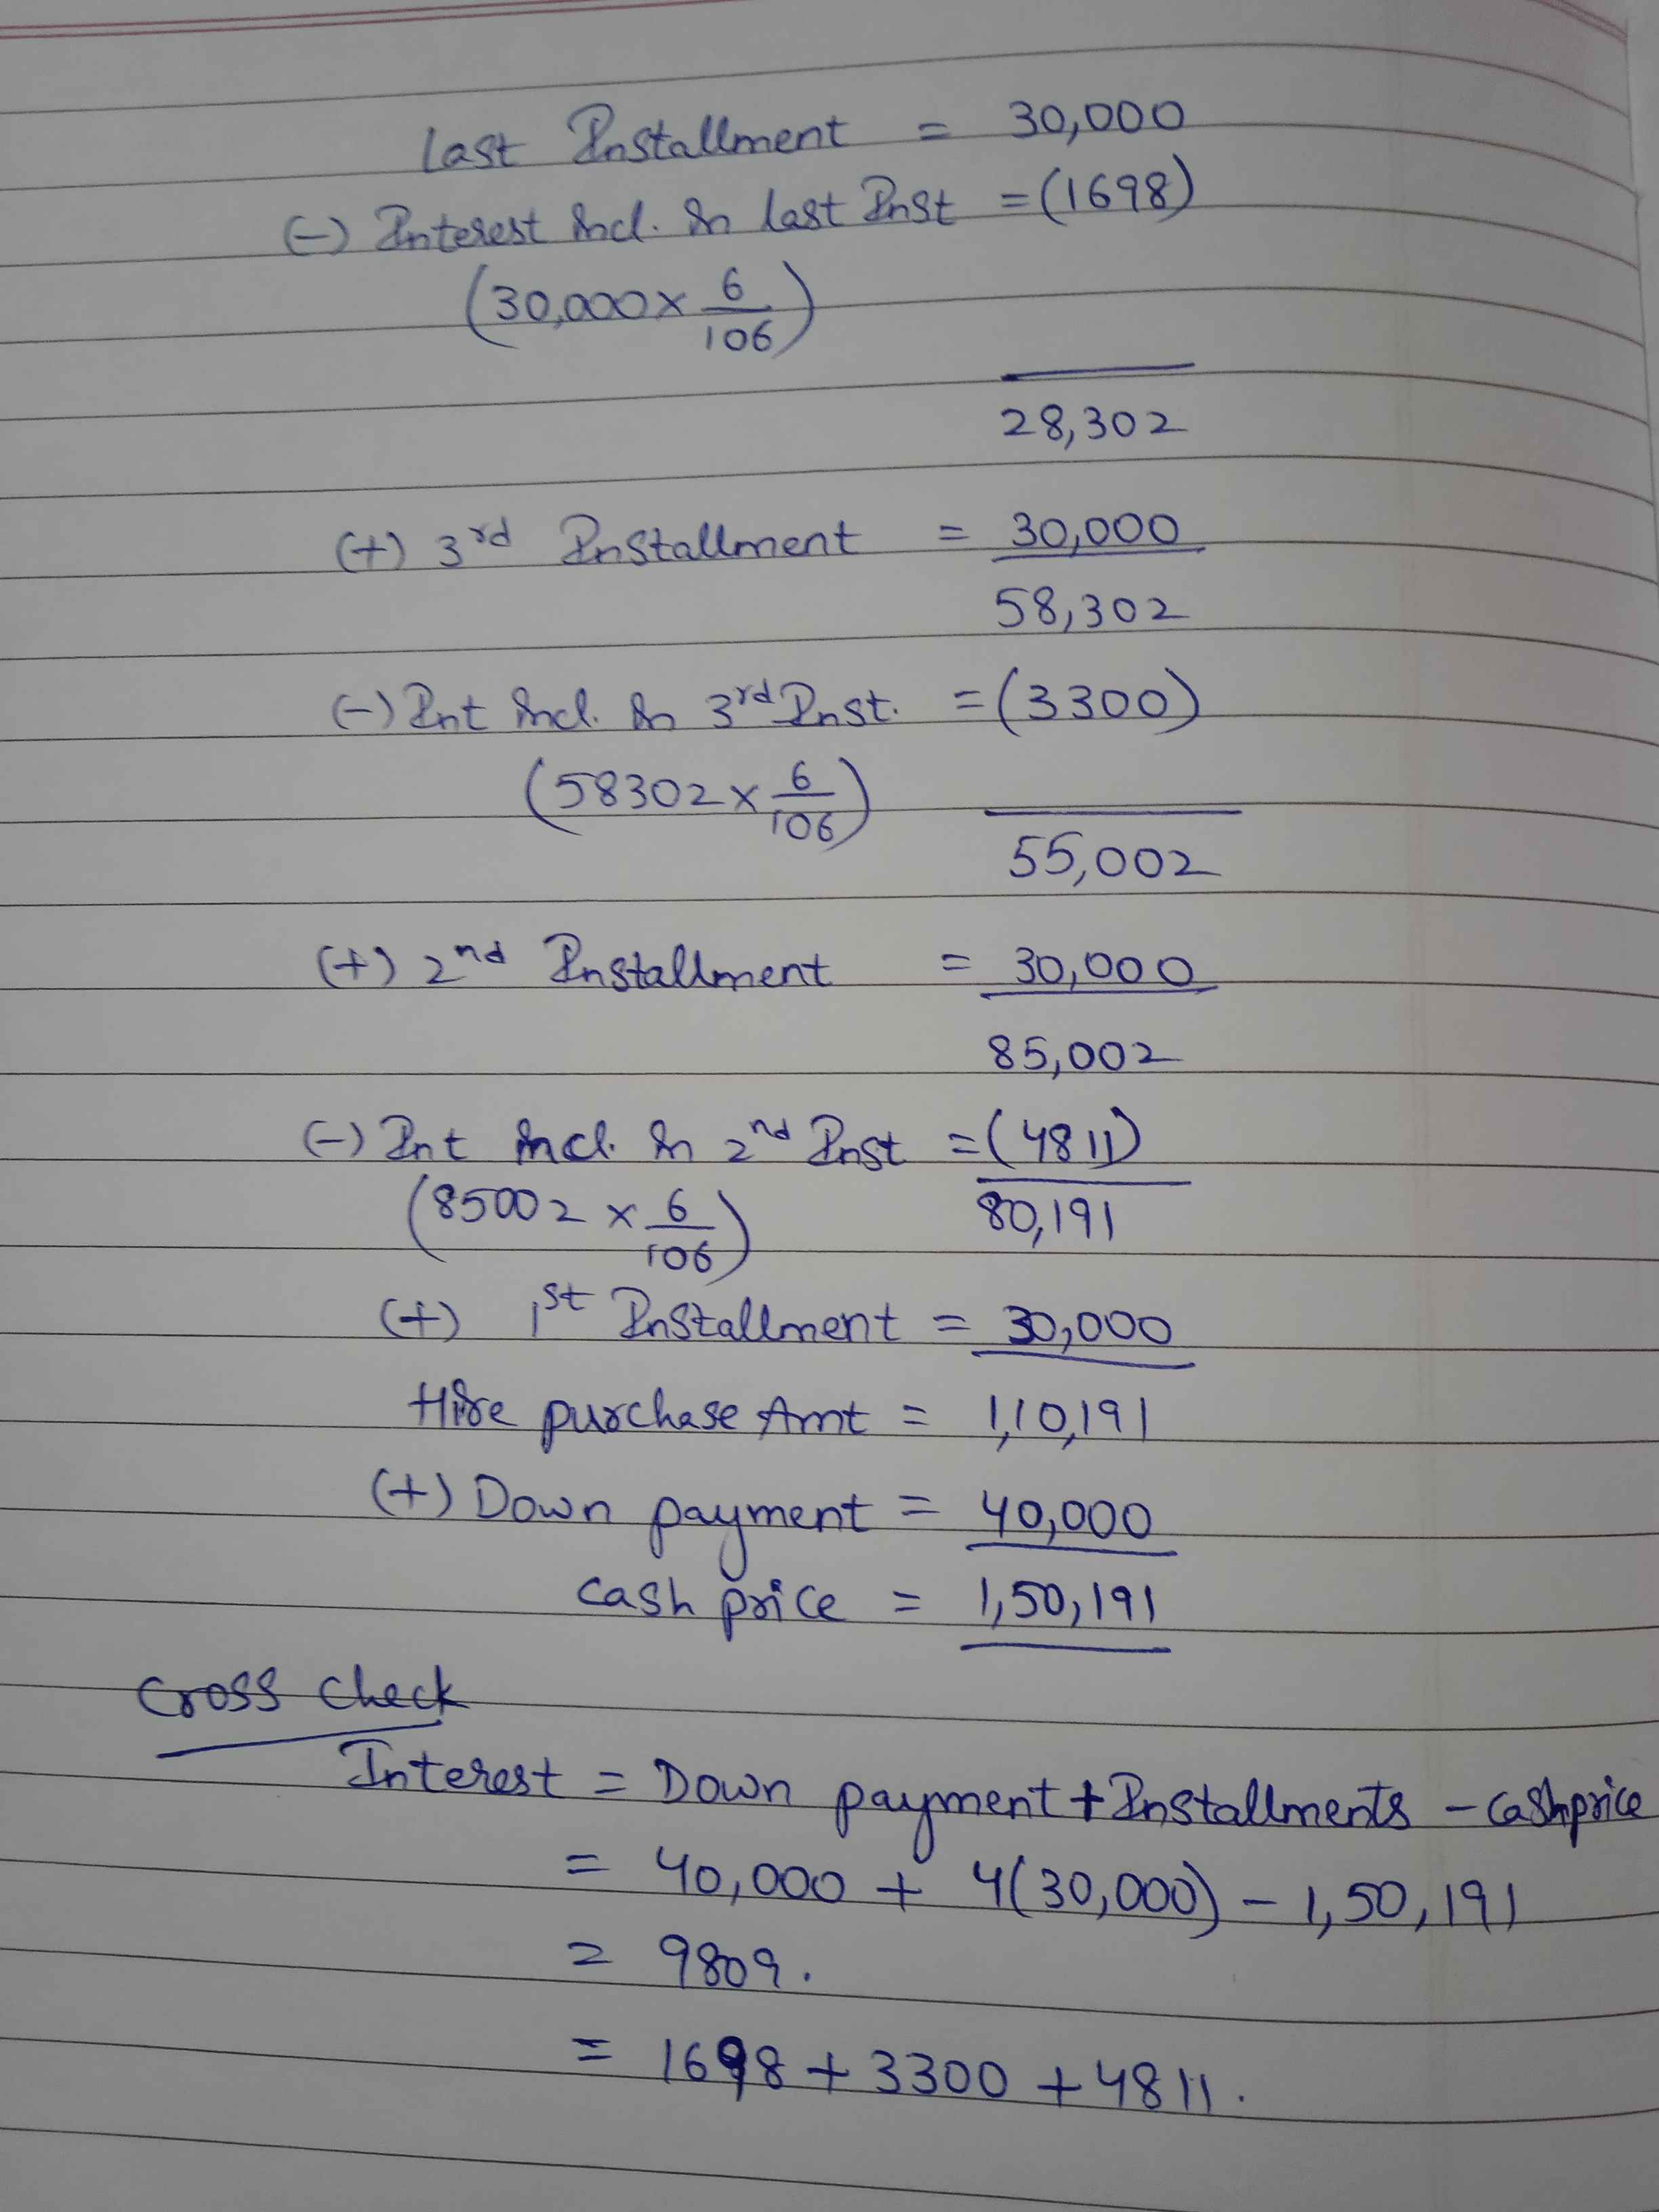 Last Installment = 30,000
(-) Interest incl. in last Inst = (1698)
(30,000 x 6/106)
28,302
(+) 3rd Installment = 30,000
58,302
(-) Int incl. in 3rd Inst. = (3300)
(58302 x 6/106)
55,002
(+) 2nd Installment = 30,000
85,002
(-) Int incl. in 2nd Inst = (4811)
(85002 x 6/106) 80,191
(+) 1st Installment = 30,000
Hire purchase Amt = 1,10,191
(+) Down payment = 40,000
cash price = 1,50,191
Cross check
Interest = Down payment + Installments - cashprice
= 40,000 + 4(30,000) - 1,50,191
= 9809.
= 1698 + 3300 + 4811.